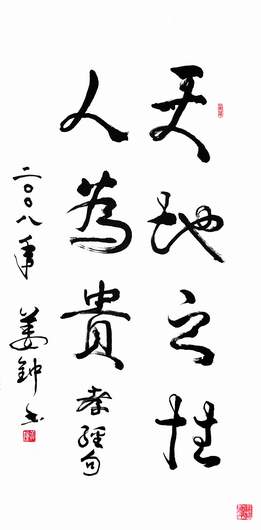 天地之性
人為貴 孝經句
二〇〇八年 姜鈡书